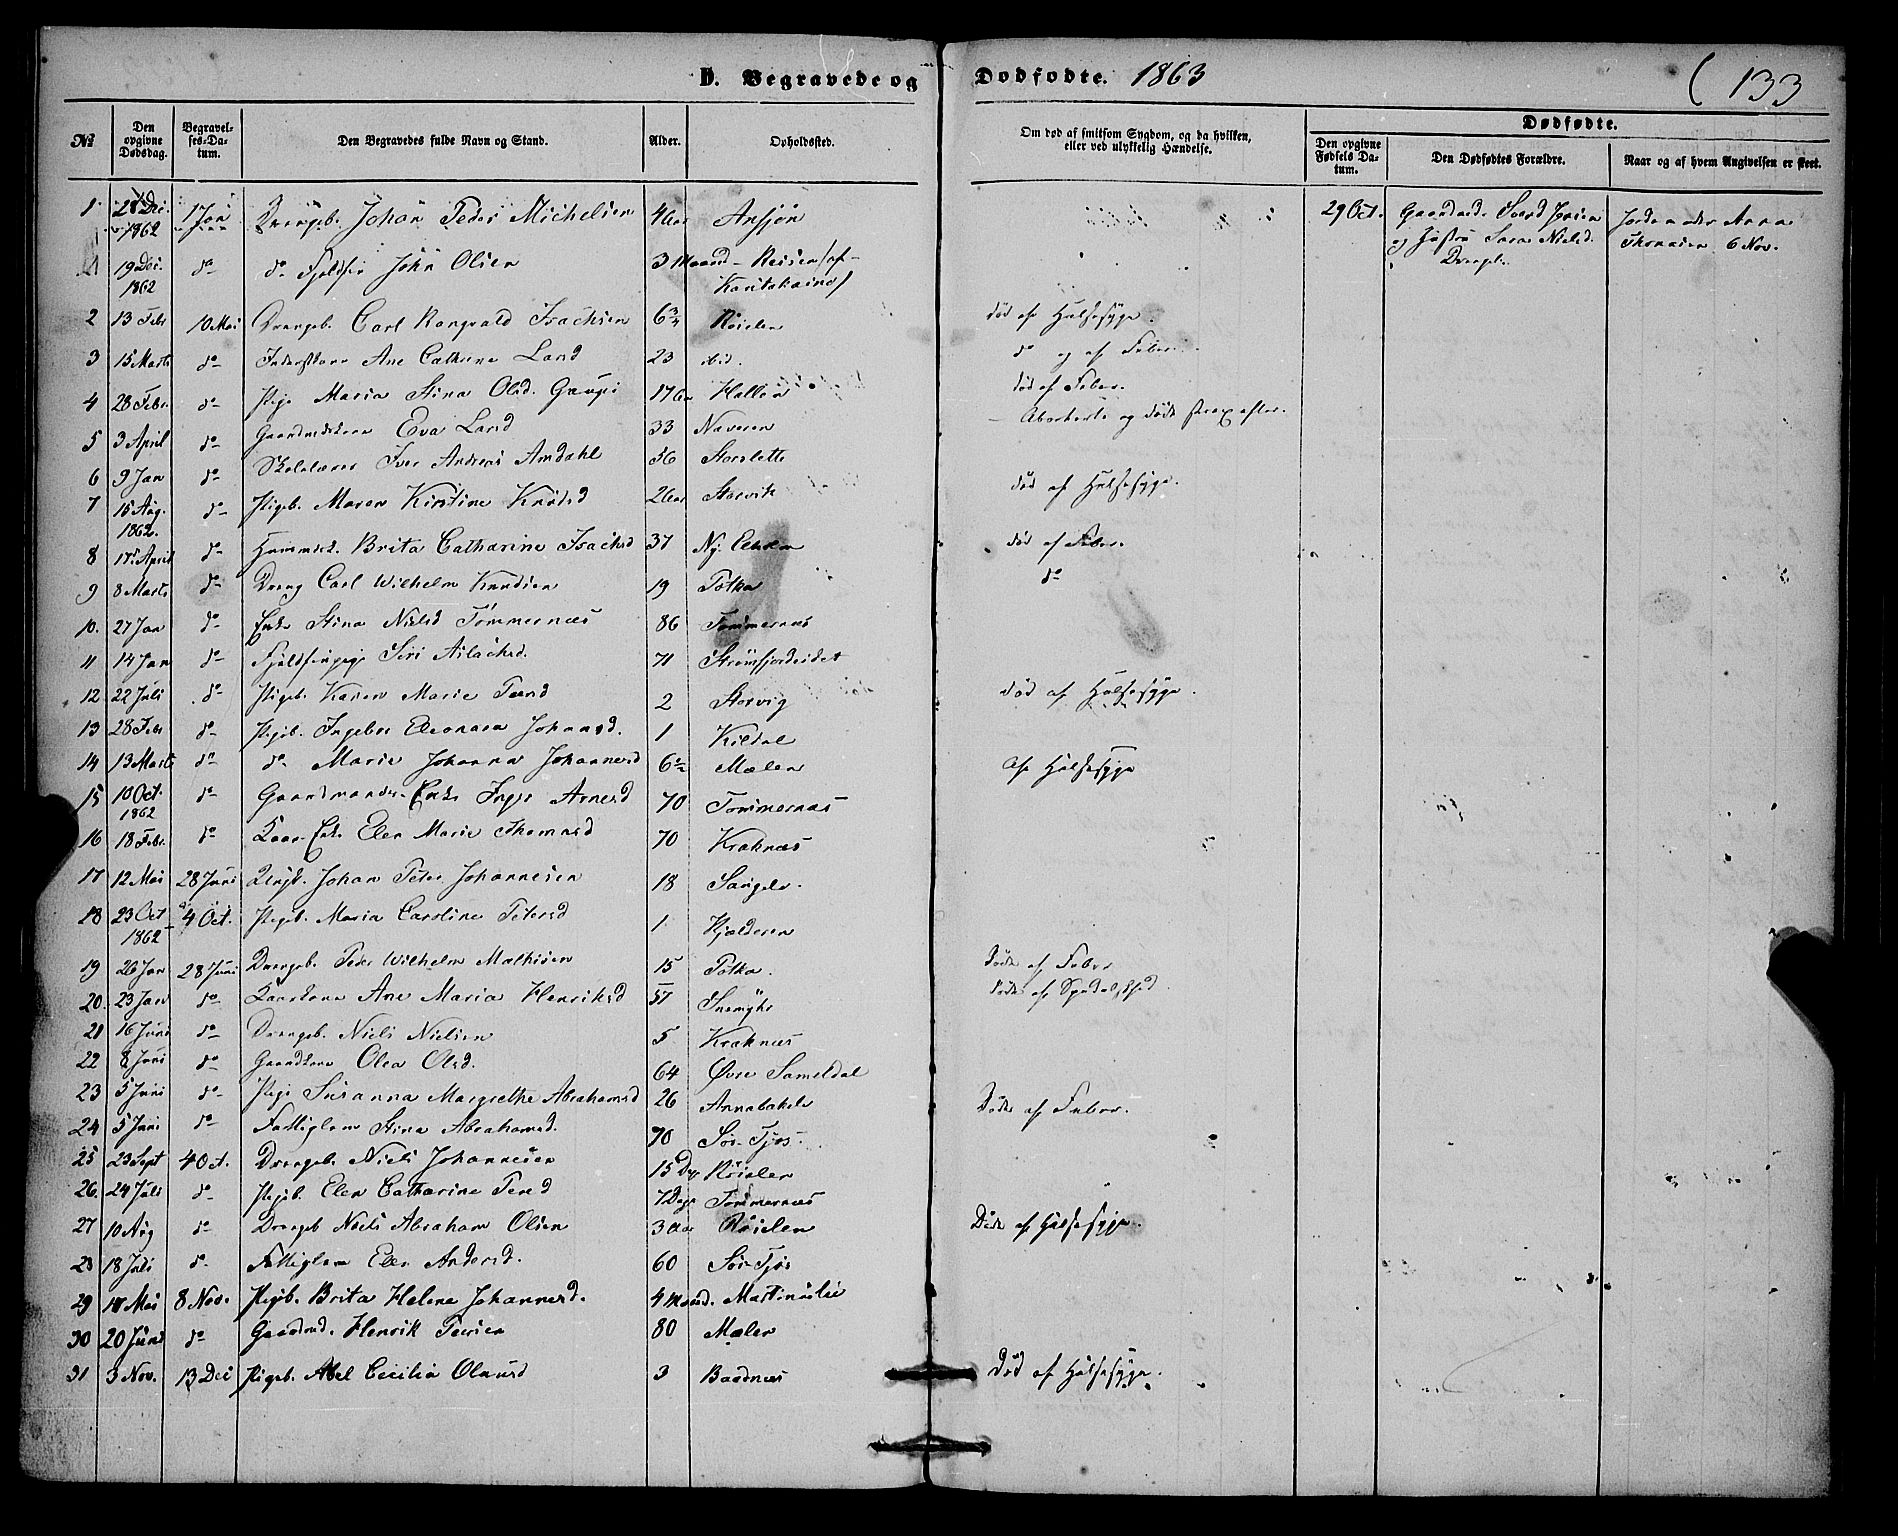 D. Begravede og Dødfødte. 1863
133
№ | Den opgivne Dødsdag. | Begravelses-Datum. | Den Begravedes fulde Navn og Stand. | Alder. | Opholdssted. | Om død af smitsom Sygdom, og da hvilken, eller ved ulykkelig Hændelse. | Dødfødte. | Den opgivne Fødsels Datum. | Den Dødfødtes Forældre. | Naar og af hvem Angivelsen er skeet.
1 | 28 Dec. 1862 | 1 Jan | Drengeb. Johan Peder Michelsen | 4 | | | 29 Oct. | og Hustru Sara Nielsd. | Thomasen 6 Nov.
19 Dec. 1862 | do | do John Olsen | 3 Maaned
2 | 13 Febr | 10 Mai | Drengeb. Carl Rangvald Isachsen | 6 3/4 | Röielen | død af Halsesyge.
3 | 15 Marts | do | Ane Cathrine Larsd | 23 | ibid. | do og af Feber.
4 | 28 Febr. | do | Pige Maria Stina Olsd. | 17 | | død af Feber.
5 | 3 April | do | Eva Larsd | 33 | Naveren | Aborterte og døde strax efter.
6 | 9 Jan | do | Skolelærer Iver Andreas Amdahl | 36 | Storslette
7 | 15 Aug. 1862. | do | Pigeb. Maren Kirstine Knudsd | 2 | Storvik | død af Halsesyge.
8 | 17 April | do | Brita Catharine Isachsd | 37 | | død af Feber.
9 | 8 Marts | do | Dreng Carl Wilhelm Knudsen | 19 | Potka | do
10. | 27 Jan | do | Enke Stina Nielsd Tømmernæs | 86 | Tømmernæs
11 | 14 Jan | do | Siri Aslachsd. | 71 | Strømfjordeidet
12 | 22 Juli | do | Pigeb. Karen Marie Peersd | 2 | Storvig | død af Halsesyge.
13 | 28 Febr | do | Pigeb. Ingebor Eleonora Johansd. | 1 | Kildal
14 | 13 Marts | do | do Marie Johanna Johannesd | 6 1/2 | Mælen | af Halsesyge
15 | 10 Oct. 1862 | do | Gaardmands-Enke Inger Arnesd | 70 | Tømmernæs
16 | 18 Febr. | do | Enke Elen Marie Thomasd | 70 | Kraknæs
17 | 12 Mai | 28 Juni | Johan Peter Johannesen | 18
18 | 23 Oct 1862 | 4 Oct. | Pigeb. Maria Caroline Petersd | 1 | Kjelderen
19 | 26 Jan | 28 Juni | Drengeb. Peder Wilhelm Mathisen | 15 | Potka. | Døde af Feber
20. | 23 Jan | do | Ane Maria Henriksd | 57 | | døde af Spedalskhed.
21 | 16 Juni | do | Drengeb. Niels Nielsen | 5 | Kraknæs
22 | 8 Juni | do | Olea Olsd. | 64 | Øvre Sameldal
23 | 5 Juni | do | Pige Susanna Margrethe Abrahamsd | 26 | Annabakke | Døde af Feber.
24 | 5 Juni | do | Fattiglem Stina Abrahamsd. | 70
25 | 23 Sept | 4 Oct. | Drengeb. Niels Johannesen | 15 Dage | Röielen
26. | 24 Juli | do | Pigeb. Elen Catharine Peersd | 7 Dage | Tømmernæs
27 | 10 Aug | do | Drengeb Niels Abraham Olsen | 3 Aar | Röielen | Døde af Halsesyge.
28 | 18 Juli | do | Fattiglem Elen Andersd. | 60
29 | 18 Mai | 8 Nov. | Pigeb. Brita Helene Johannesd. | 4 Maaned. | Martinslie
30 | 20 Juni | do | Gaardmd. Henrik Peersen | 80 | Mælen
31 | 3 Nov. | 13 Dec | Pigeb. Abel Cecilia Olausd | 3 | Baadnæs | Død af Halsesyge.